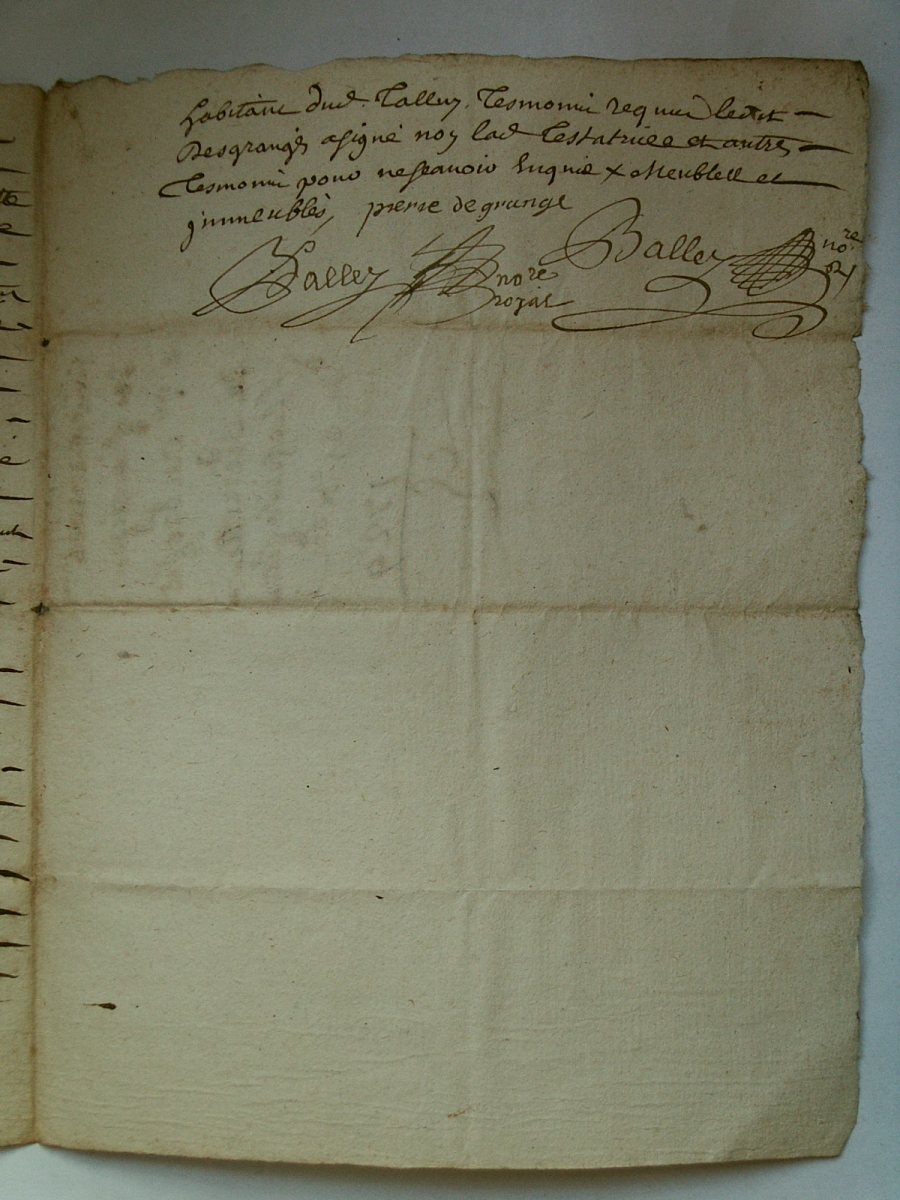 habitant dud. Talluy. Tesmoins requis ledit
Desgranges a signé non lad Testatrice et autres
Tesmoins pour ne scavoir Enquis x Meubles et
jmmeubles, pierre degrange
Balley nore Balley nore
royal